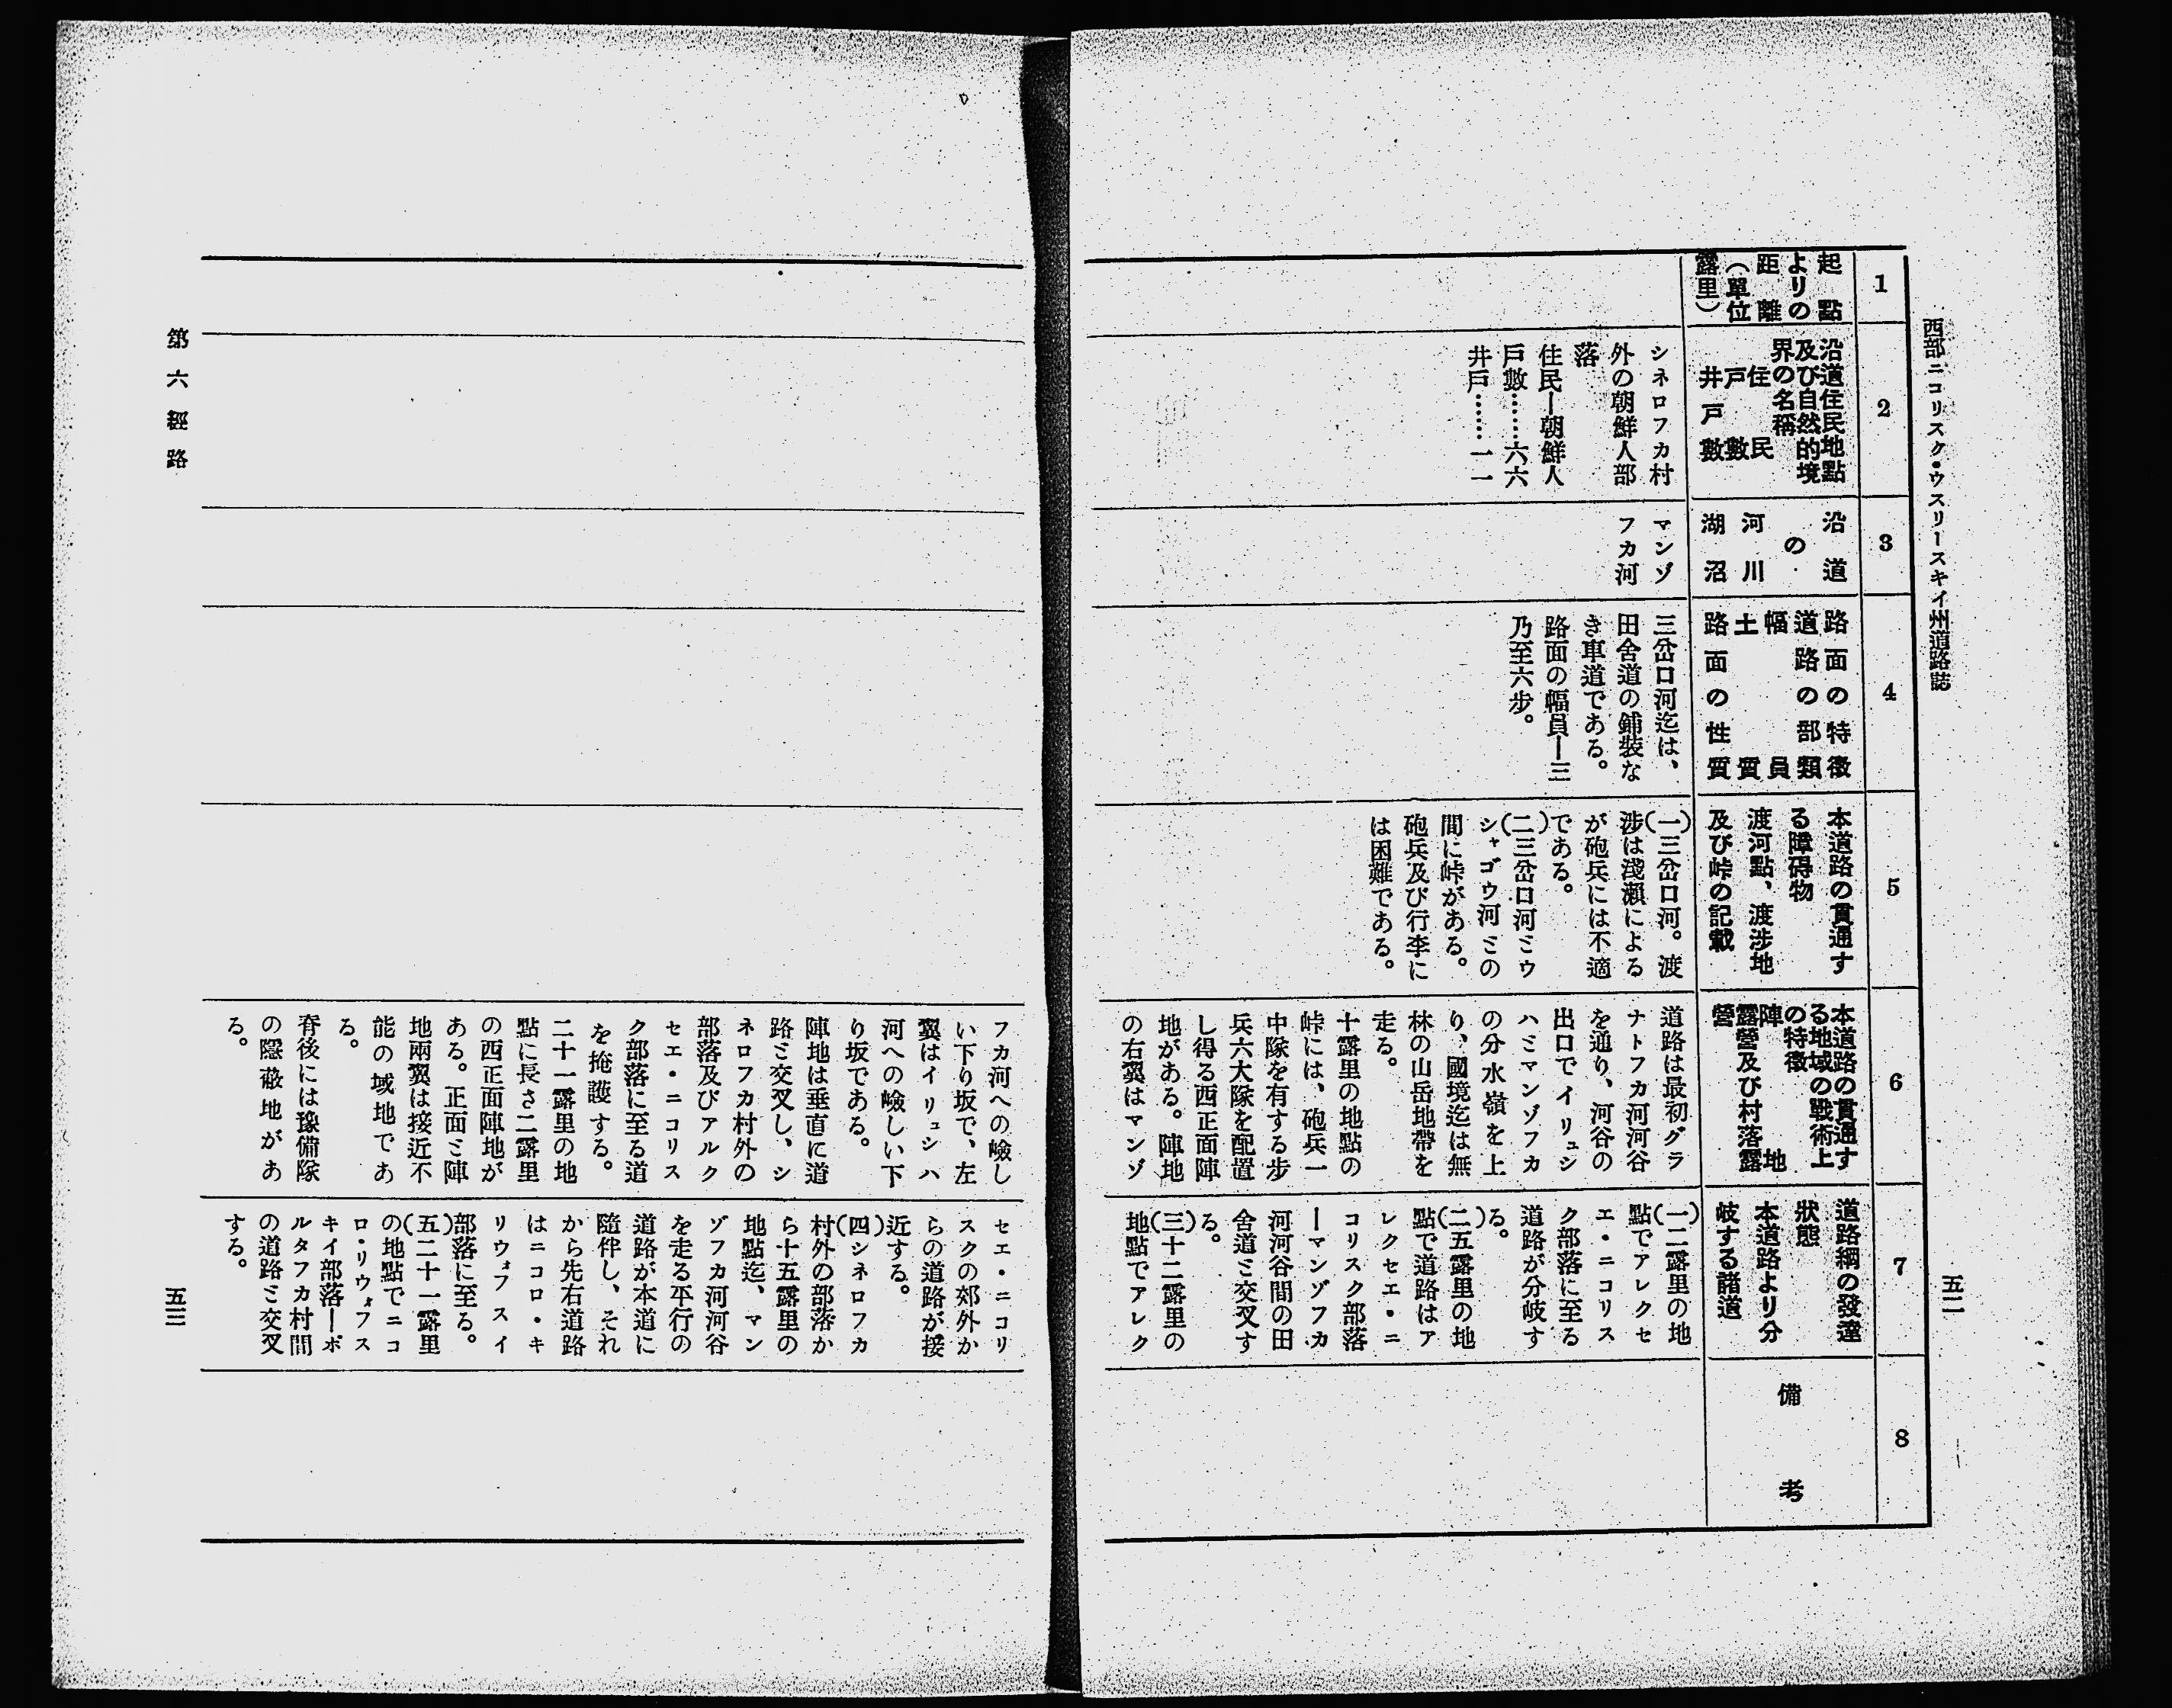 西部ニコリスク・ウスリースキイ州道路誌
五二
1
起點
よりの
距離
（單位
露里）
2
沿道住民地點
及び自然的境
界の名稱
住民
戸數
井戸數
シネロフカ村
外の朝鮮人部
落
住民ー朝鮮人
戸數……六六
井戸……一一
3
沿道
の
河川
湖沼
マンゾ
フカ河
4
路面の特徵
道路の部類
幅員
土質
路面の性質
三岔口河迄は、
田舍道の鋪裝な
き車道である。
路面の幅員ー三
乃至六步。
5
本道路の貫通す
る障碍物
渡河點、渡涉地
及び峠の記載
(一)三岔口河。渡
涉は淺瀨による
が砲兵には不適
である。
(二)三岔口河ミウ
シャゴウ河ミの
間に峠がある。
砲兵及び行李に
は困難である。
6
本道路の貫通す
る地域の戰術上
の特徵
陣地
露營及び村落露
營
道路は最初グラ
ナトフカ河河谷
を通り、河谷の
出口でイリュシ
ハミマンゾフカ
の分水嶺を上
り、國境迄は無
林の山岳地帶を
走る。
十露里の地點の
峠には、砲兵一
中隊を有する步
兵六大隊を配置
し得る西正面陣
地がある。陣地
の右翼はマンゾ
7
道路網の發達
狀態
本道路より分
岐する諸道
(一)二露里の地
點でアレクセ
エ・ニコリス
ク部落に至る
道路が分岐す
る。
(二)五露里の地
點で道路はア
レクセエ・ニ
コリスク部落
ーマンゾフカ
河河谷間の田
舍道ミ交叉す
る。
(三)十二露里の
地點でアレク
8
備考
フカ河への嶮し
い下り坂で、左
翼はイリュシハ
河への嶮しい下
り坂である。
陣地は垂直に道
路ミ交叉し、シ
ネロフカ村外の
部落及びアルク
セエ・ニコリス
ク部落に至る道
を掩護する。
二十一露里の地
點に長さ二露里
の西正面陣地が
ある。正面ミ陣
地兩翼は接近不
能の域地であ
る。
脊後には豫備隊
の隱蔽地があ
る。
セエ・ニコリ
スクの郊外か
らの道路が接
近する。
(四)シネロフカ
村外の部落か
ら十五露里の
地點迄、マン
ゾフカ河河谷
を走る平行の
道路が本道に
隨伴し、それ
から先右道路
はニコロ・キ
リウォフスイ
部落に至る。
(五)二十一露里
の地點でニコ
ロ・リウォフス
キイ部落ーポ
ルタフカ村間
の道路ミ交叉
する。
第六經路
五三